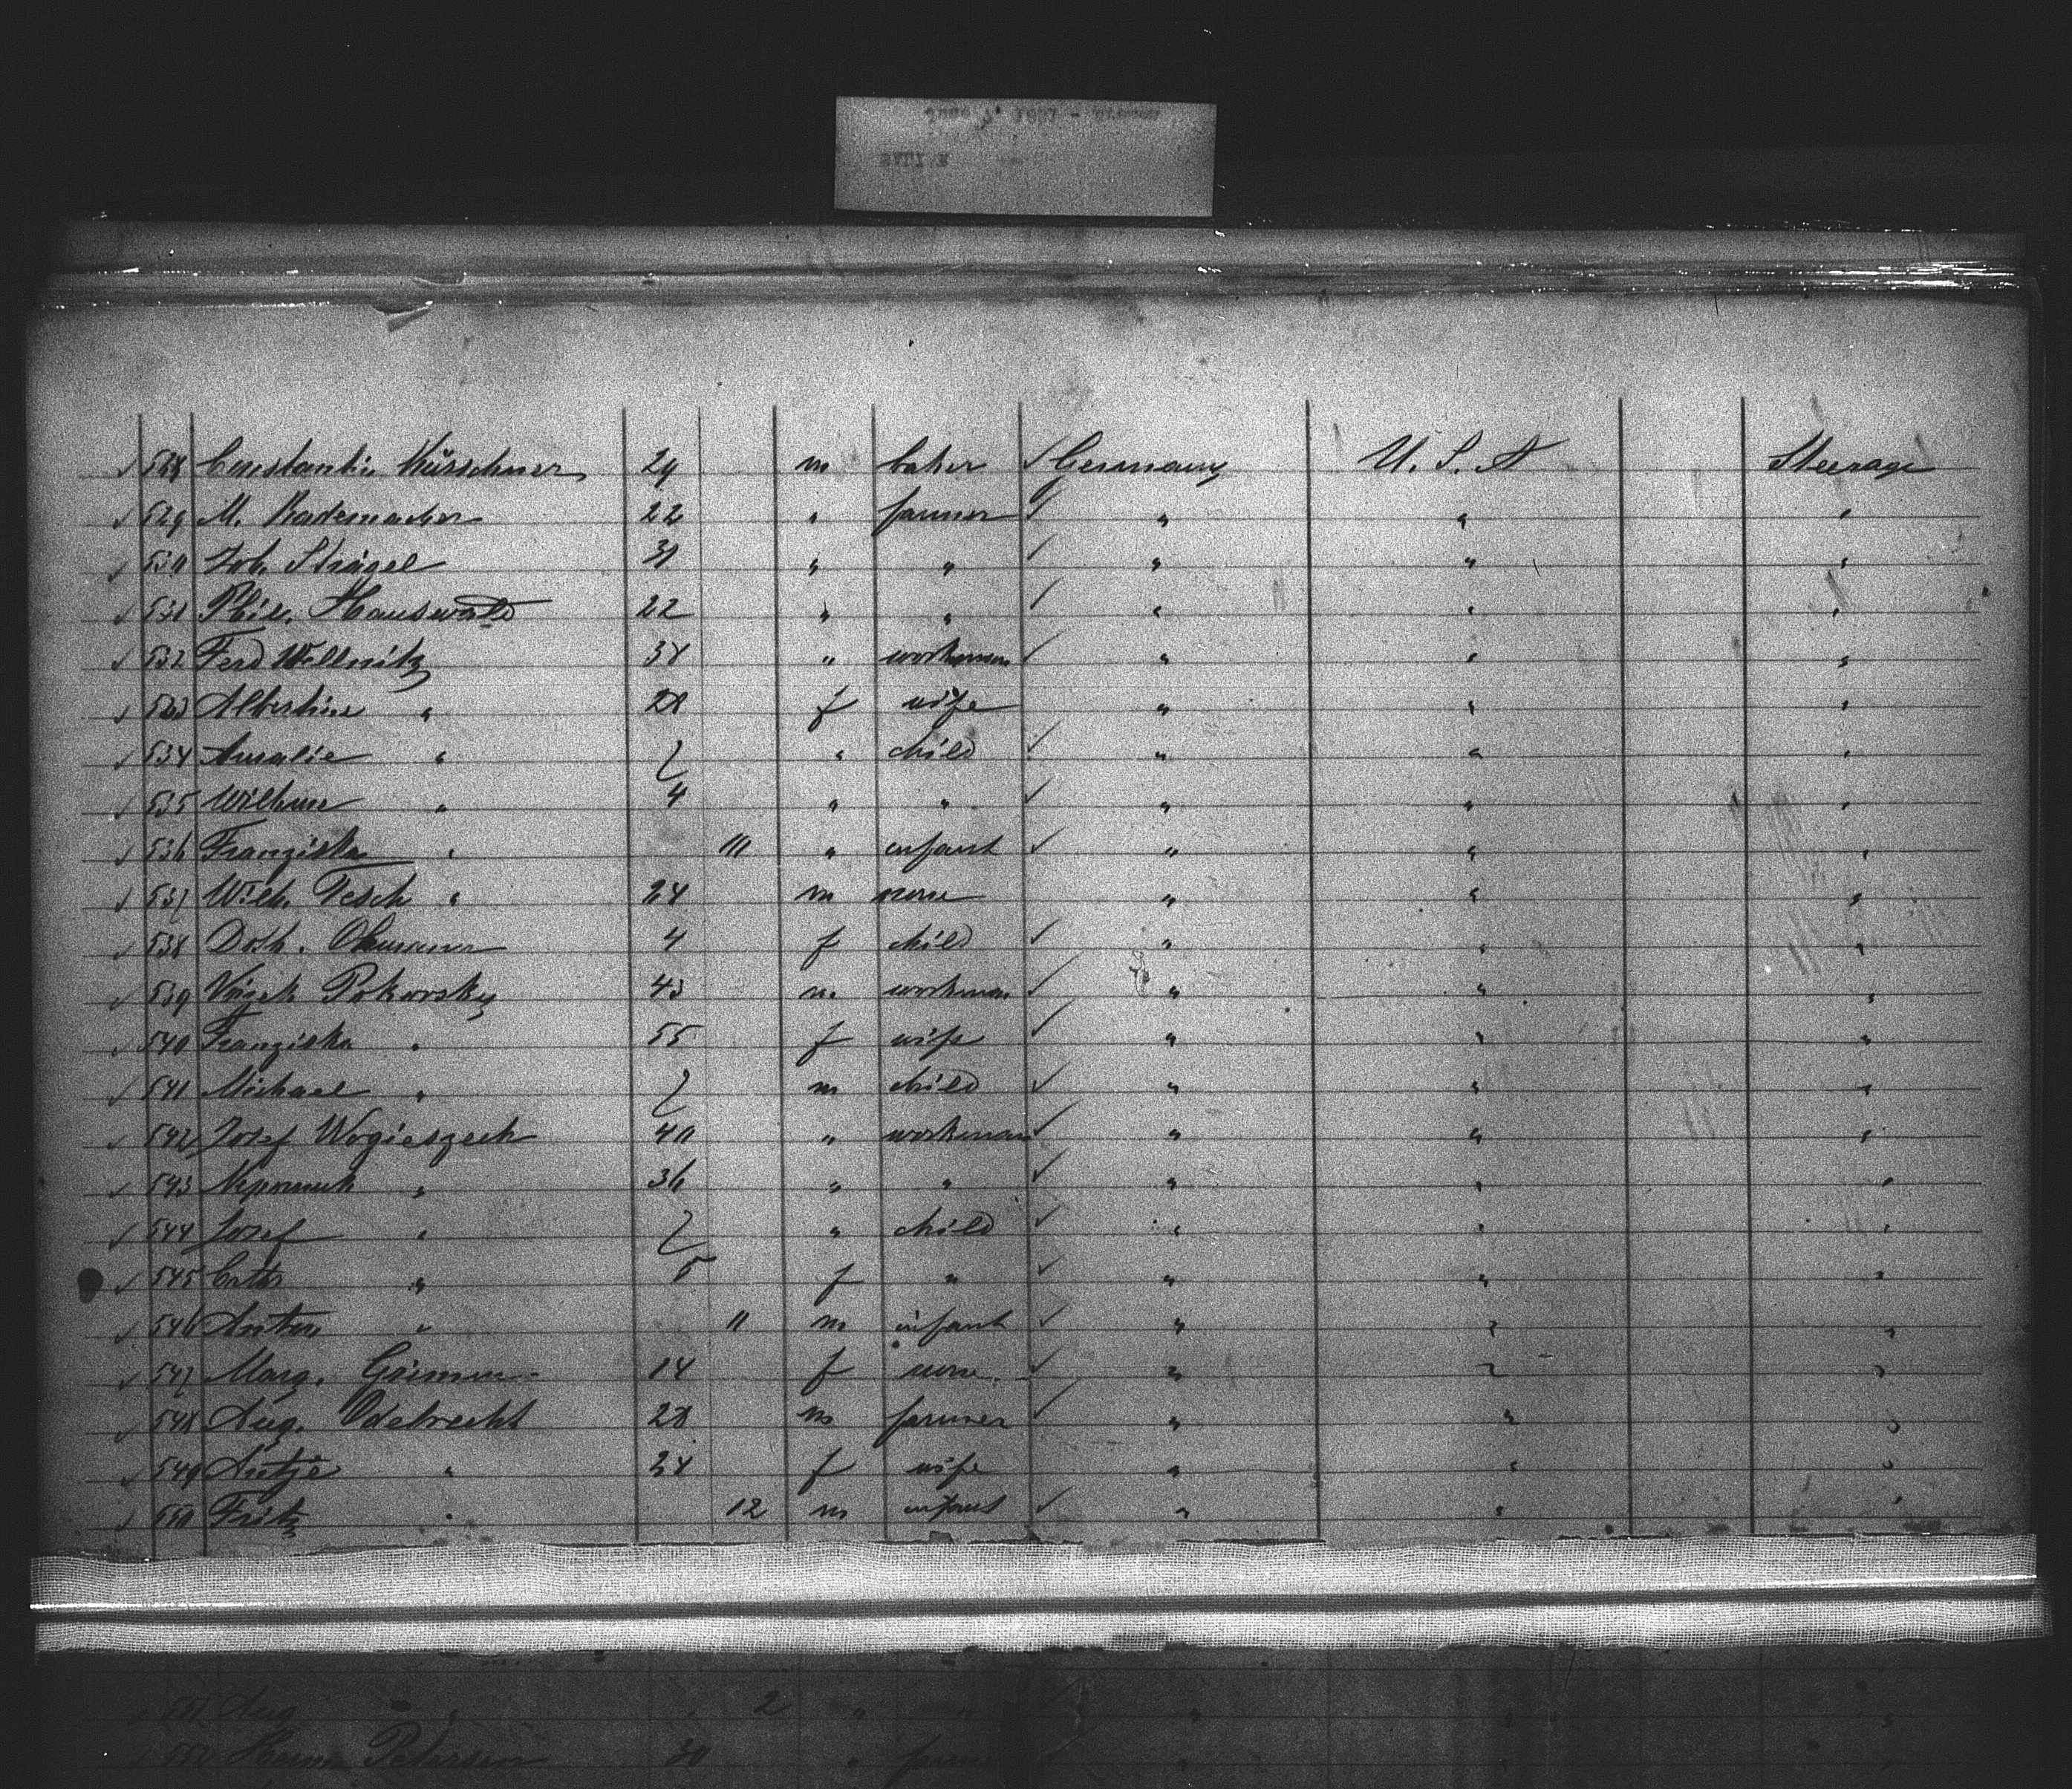 528 Constantin Kürschner 29 m baker Germany U. S. A Steerage
529 M. Rademacher 22 " farmer " " "
530 Joh. Strägel 31 " " " " "
531 Phil. Hauswald 22 " " " " "
532 Ferd Wellnitz 38 " workman " " "
533 Albertine " 28 f wife " " "
534 Amalie " 7 " child " " "
535 Wilhme " 4 " " " " "
536 Franziska " 11 " infant " " "
537 Wilh. Tesch " 24 m none " " "
538 Doth. 4 f child " " "
539 Pokorsky 43 m workman " " "
540 Franziska " 55 f wife " " "
541 Michael " 7 m child " " "
542 Josef Wogieszeck 40 " workman " " "
543 " 36 " " " " "
544 Josef " 7 " child " " "
545 Cath " 5 f " " " "
546 Anton " 11 m infant " " "
547 Marg. Grimm 14 f none " " "
548 Aug. Odebrecht 28 m farmer " " "
549 Antje " 24 f wife " " "
550 Fritz " 12 m infant " " "
551 Aug " 2 " " " "
552 Petersen 30 " farmer